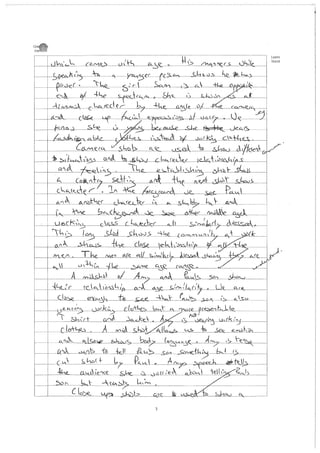 which comes with age. His manners while
speaking to a younger person shows he has
power. The girl Sam is at the opposite
end of the spectrum. She is shown as
character by the angle of the camera
and close up facial expressions of worry. We
know she is young because she wears
fashionable clothes instead of working clothes.
Camera shots are used to show different
situations and to show character relationships
and feeling. The establishing shot shows
a country setting and the next shot shows
character. In the foreground we see Paul
and another character in a shabby hat and
in the background we see other middle aged
working class character all similarly dressed.
This long shot shows the community at work
and shows the close relationship of all the
men. The men are all similarly dressed showing they are
all within the same age range.
A midshot of Amy and Pauls son show
their relationship and age similarity. We are
close enough to see that Pauls son is also
wearing working clothes but a more presentable
T shirt and Jacket. Amy is not wearing working
clothes. A mid shot allows us to see emotion
and also shows body language. Amy is tense
and wants to tell Pauls son something but is
cut short by Paul. Amys speech tells
the audience she is worried about telling Pauls
son but trusts him.
Close up shots are used to show a
1